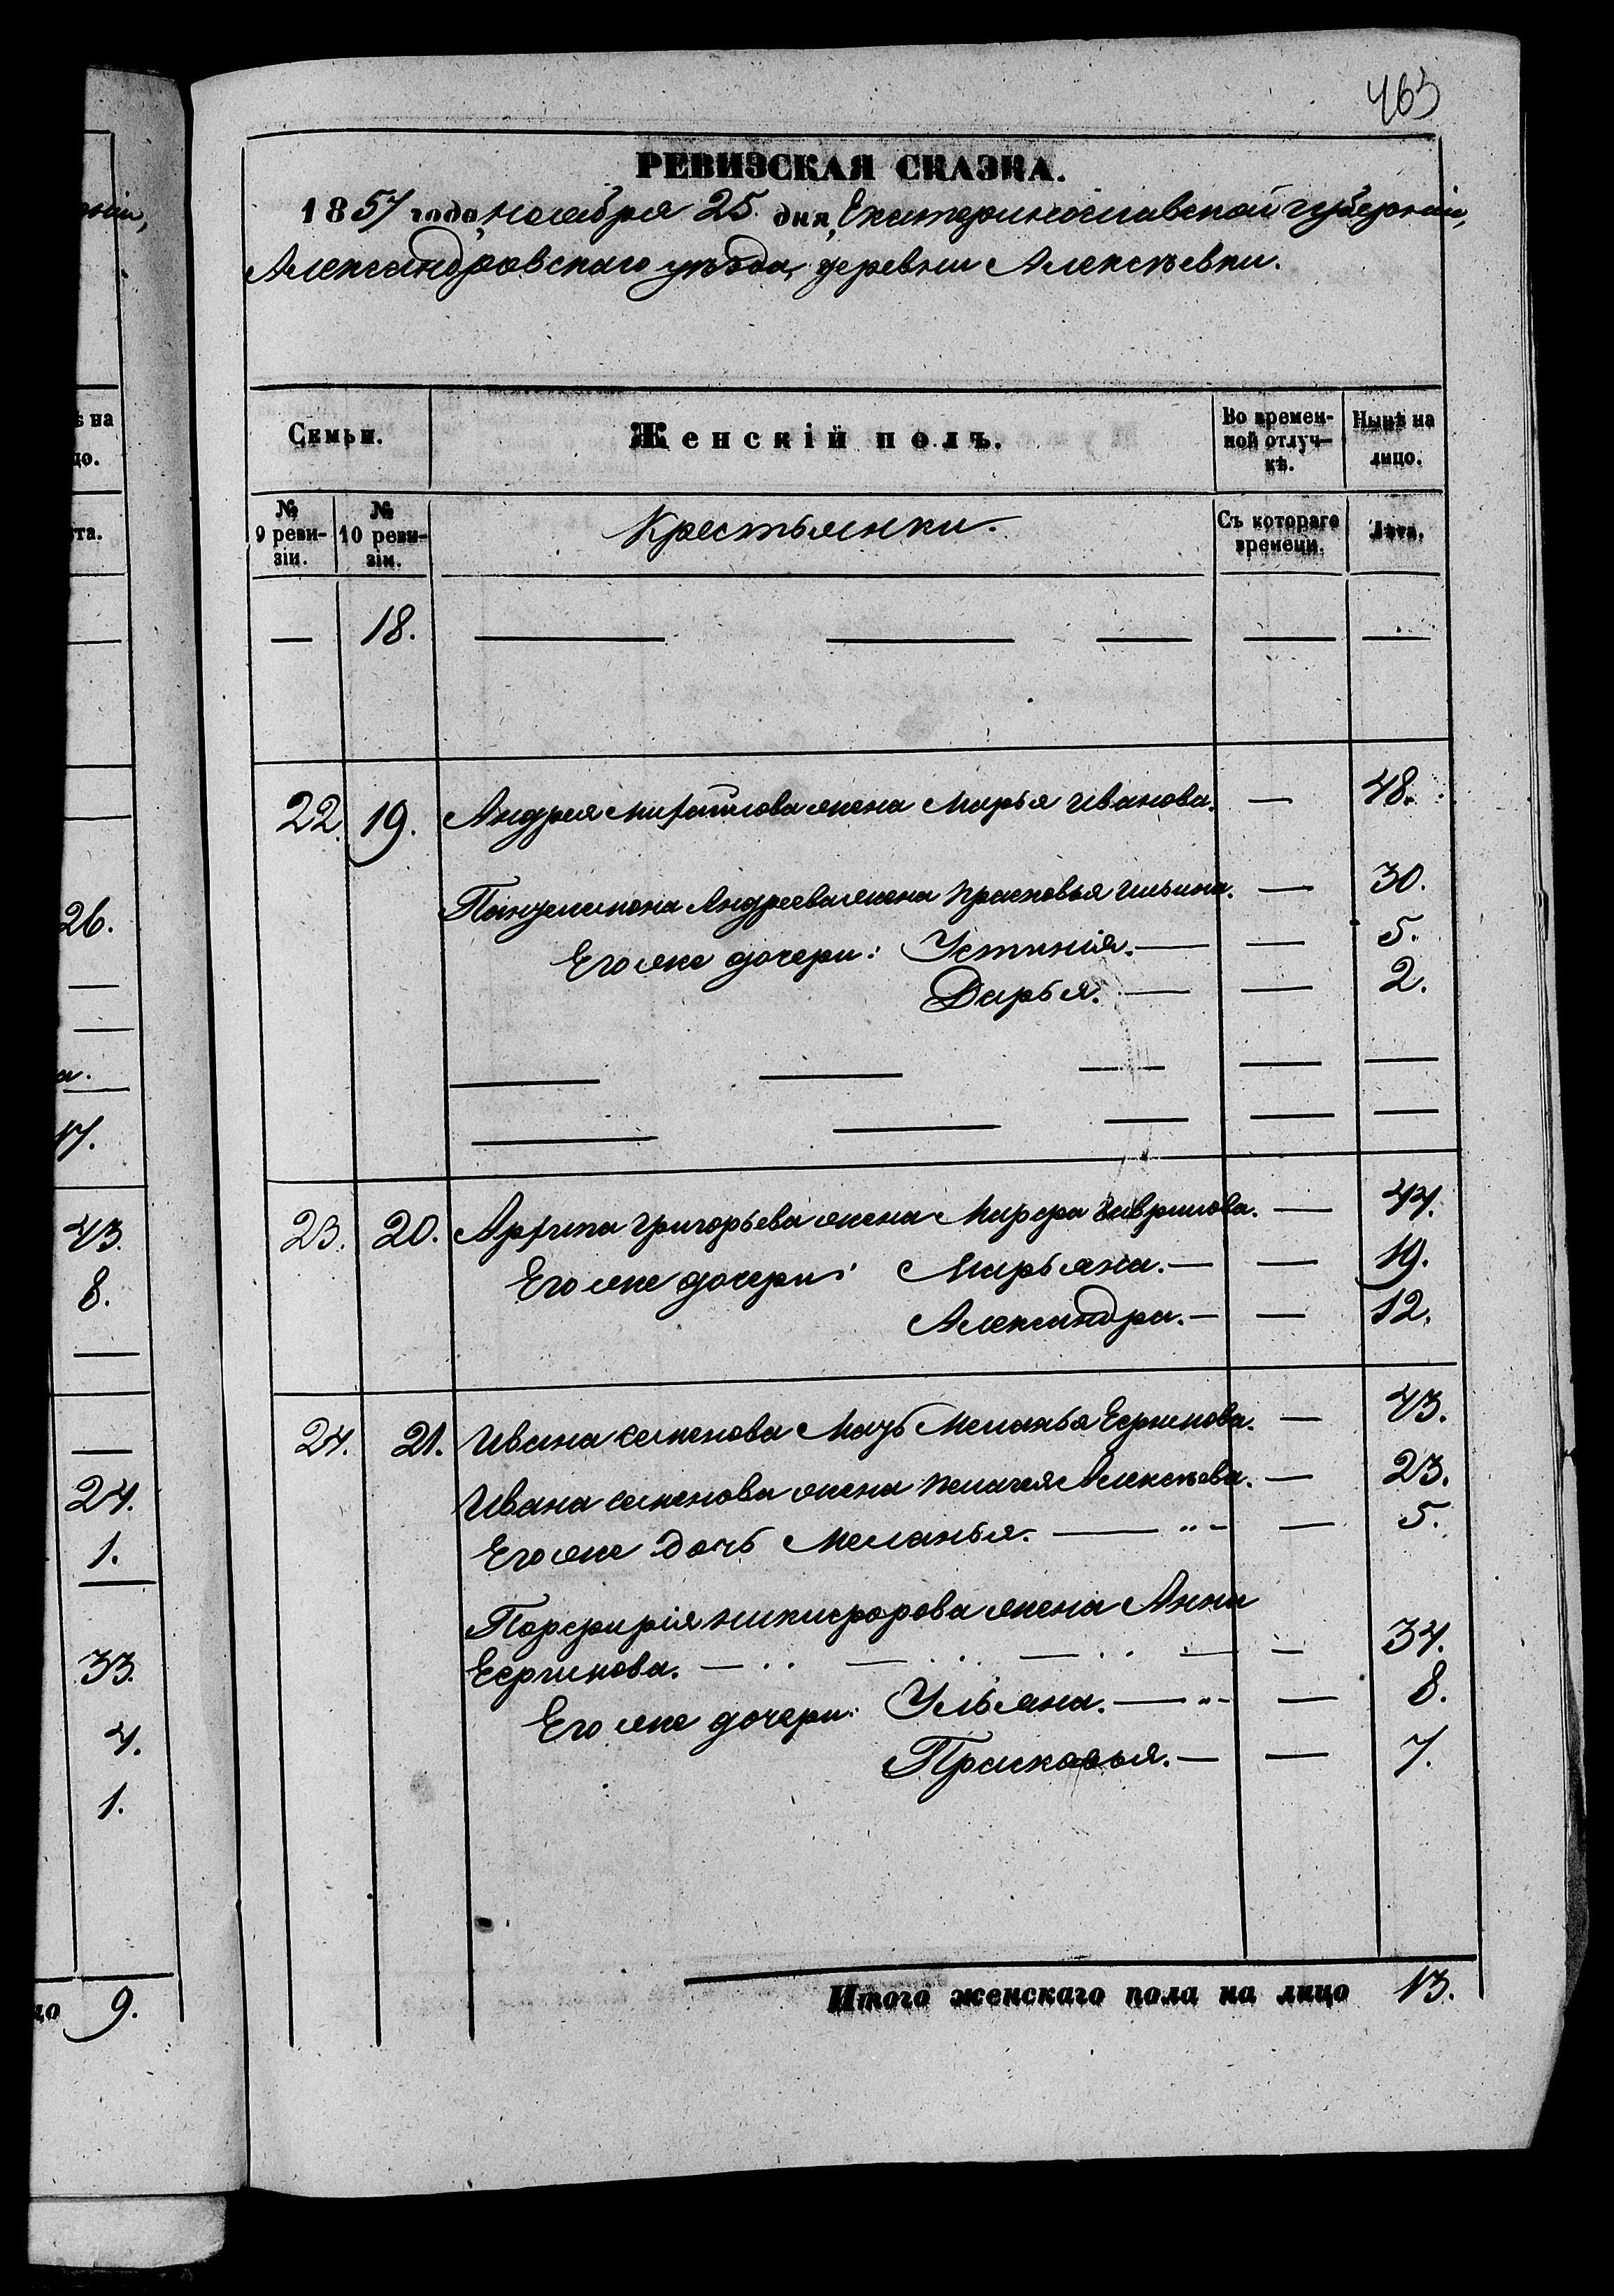 463
РЕВИЗСКАЯ СКАЗКА.
1857 года, ноября 25 дня, Екатеринославской губерніи,
Александровскаго уѣзда, деревни Алексѣевки.
Семьи.
Женскій полъ.
Во времен-
ной отлуч-
кѣ.
Нынѣ на
лицо.
№
9 реви-
зіи.
№
10 реви-
зіи.
Крестьянки.
Съ котораго
времени.
Лѣта.
— 18. — — — — —
22. 19. Андрея Михайлова жена Марья Иванова. — 48.
Пантелимона Андреева жена Прасковья Ильина. — 30.
Его же дочери: Устинія. — — 5.
Дарья. — — 2.
23. 20. Архипа Григорьева жена Марфа Гаврилова. — 44.
Его же дочери: Марьяна. — — 19.
Александра. — — 12.
24. 21. Ивана Семенова Мать Меланья Ефимова. — 43.
Ивана Семенова жена Пелагея Алексѣева. — 23.
Его же дочь Меланья. — — 5.
Порфирія Никифорова жена Анна
Ефимова. — — 34.
Его же дочери: Ульяна. — — 8.
Прасковья. — — 7.
Итого женскаго пола на лицо 13.
ѣ на
цо.
та.
26.
17.
43.
8.
24.
1.
33.
4.
1.
цо 9.